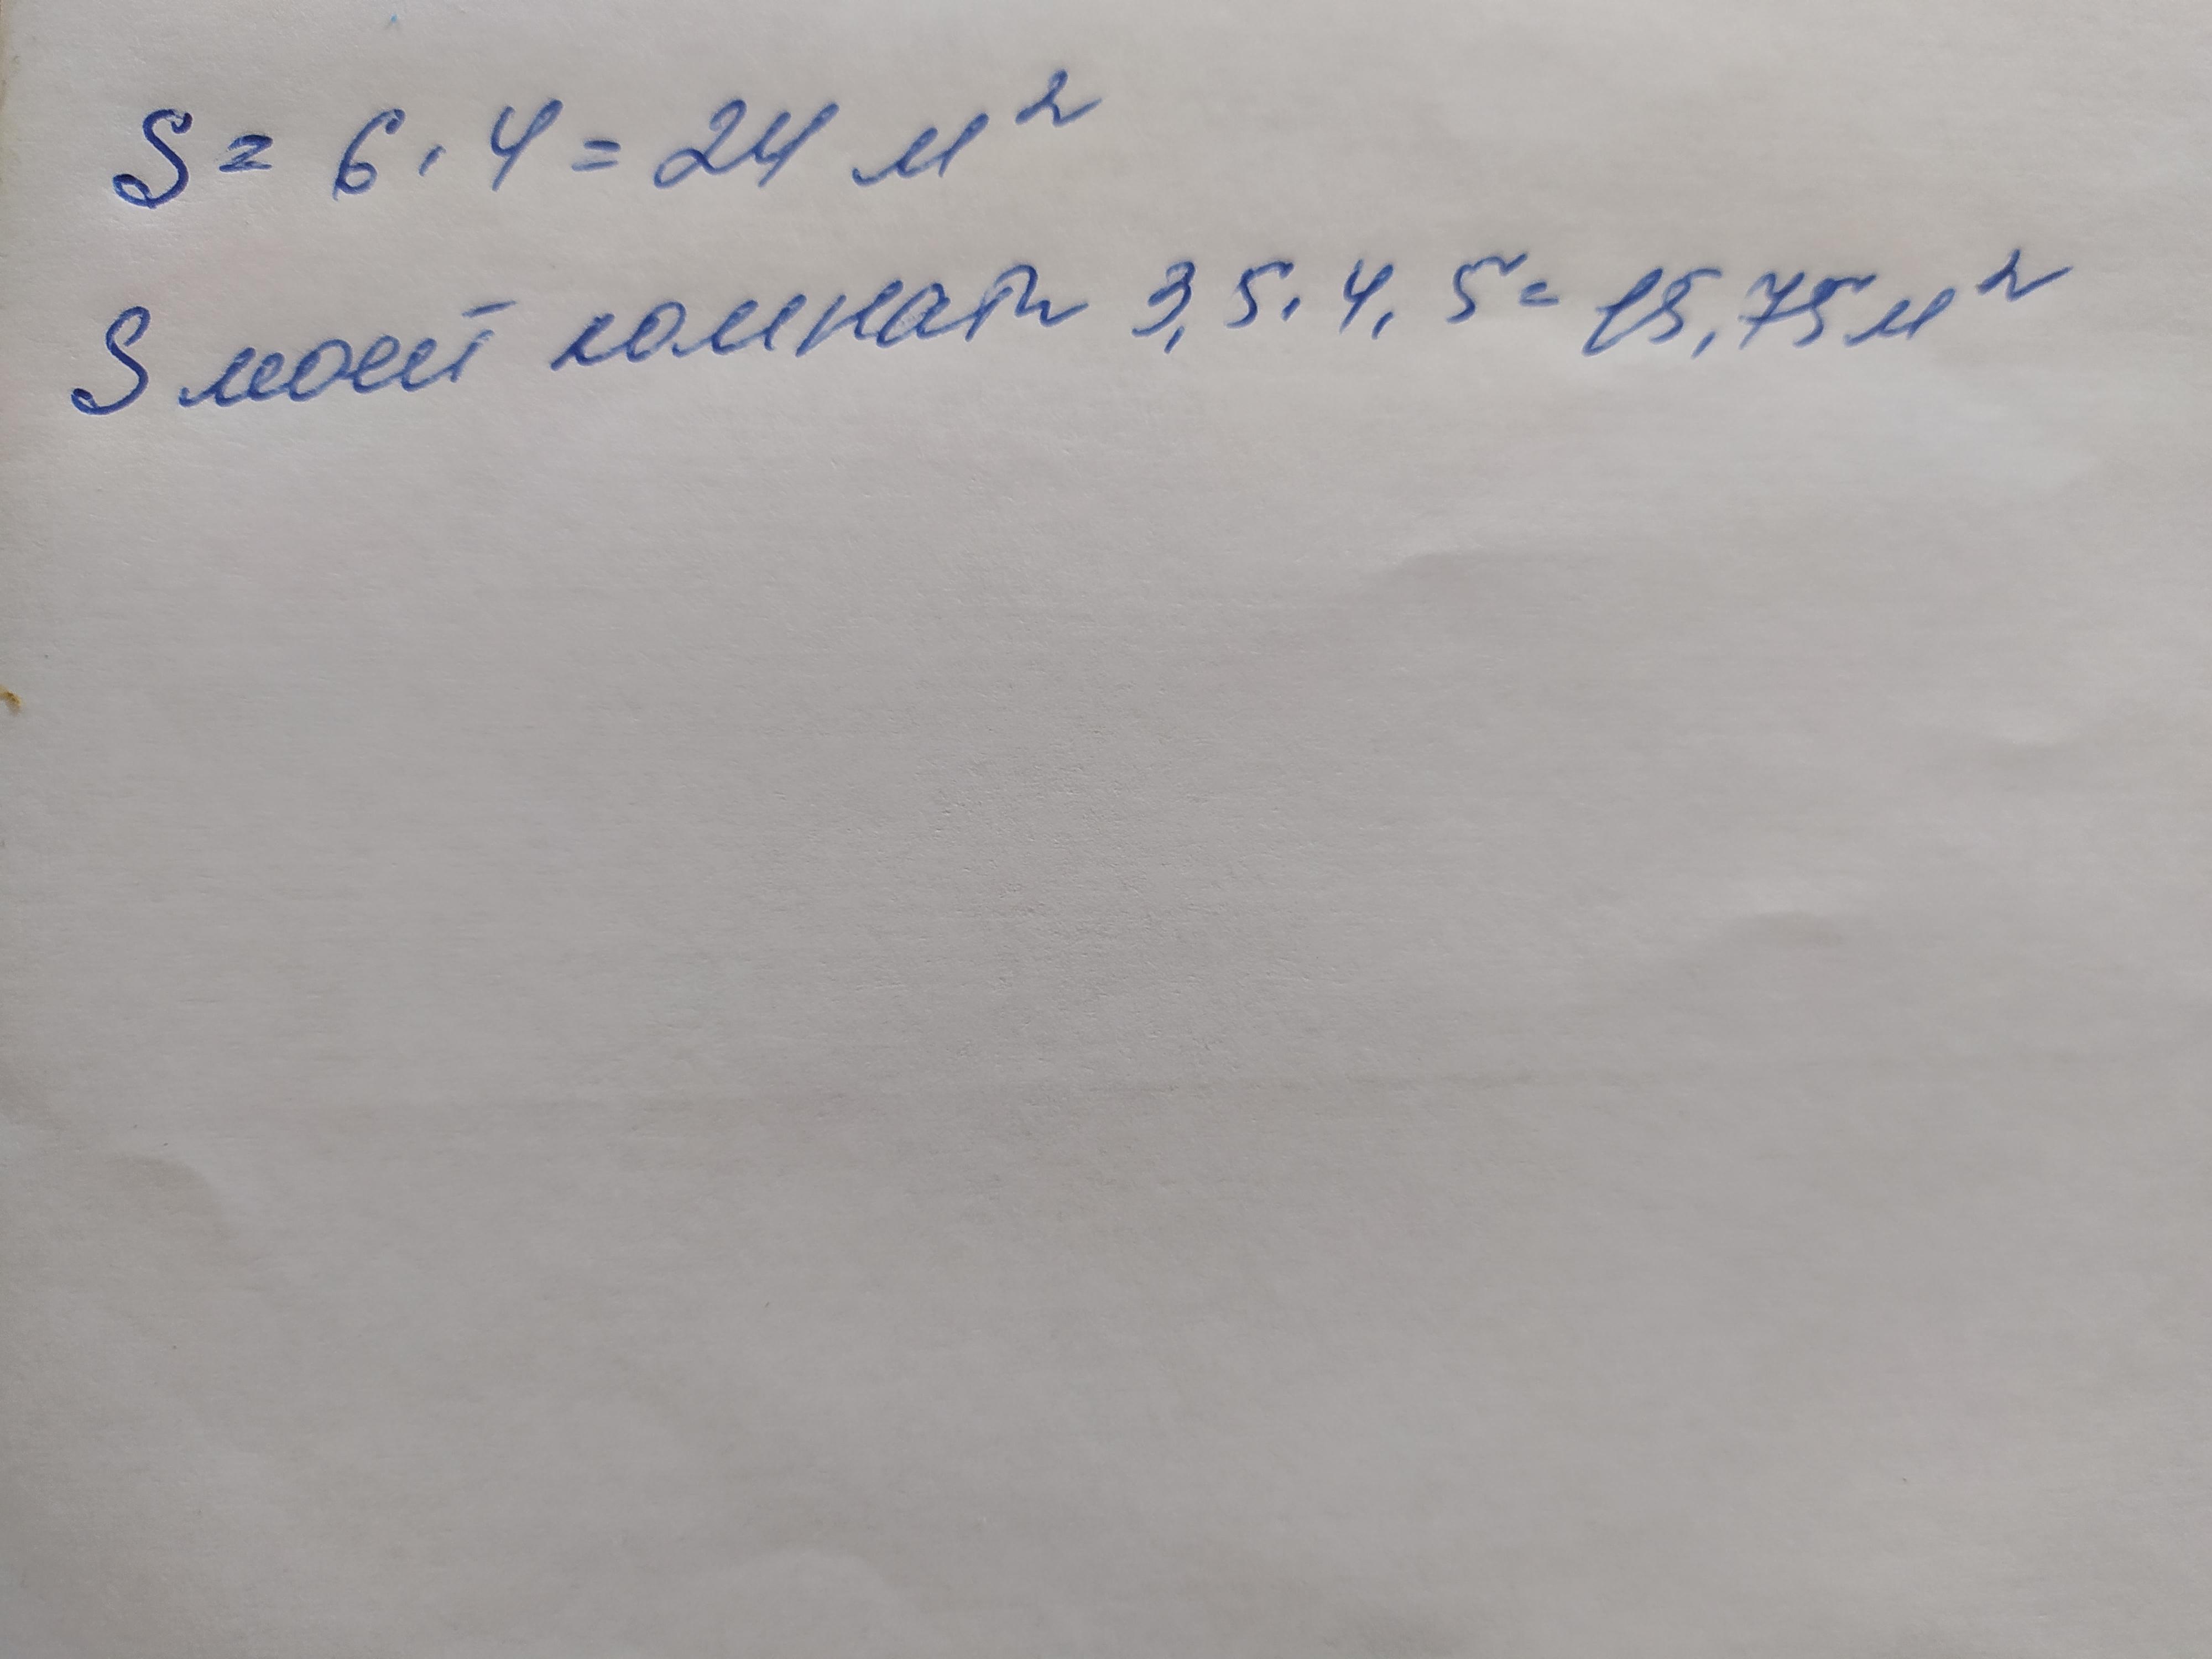 S = 6 · 4 = 24 м²
S моей комнаты 3,5 · 4,5 = 15,75 м²